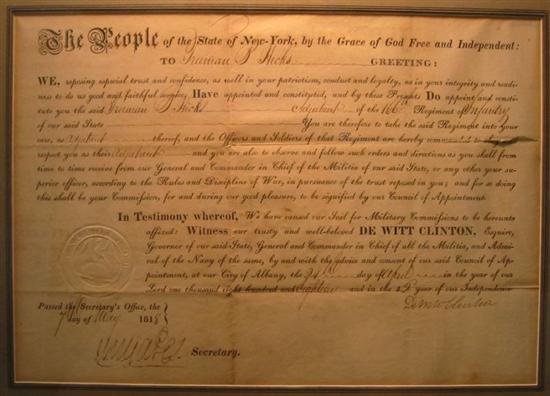 The People of the State of New-York, by the Grace of God Free and Independent:
TO Truman S Hicks GREETING:
WE, reposing especial trust and confidence, as well in your patriotism, conduct and loyalty, as in your integrity and readi-
ness to do us good and faithful service, Have appointed and constituted, and by these Presents Do appoint and consti-
tute you the said Truman S Hicks Adjutant of the 166th Regiment of Infantry
of our said State You are therefore to take the said Regiment into your
care, as Adjutant thereof, and the Officers and Soldiers of that Regiment are hereby commanded to obey and
respect you as their Adjutant and you are also to observe and follow such orders and directions as you shall from
time to time receive from our General and Commander in Chief of the Militia of our said State, or any other your su-
perior officer, according to the Rules and Discipline of War, in pursuance of the trust reposed in you; and for so doing
this shall be your Commission, for and during our good pleasure, to be signified by our Council of Appointment.
In Testimony whereof, We have caused our Seal for Military Commissions to be hereunto
affixed: Witness our trusty and well-beloved DE WITT CLINTON, Esquire,
Governor of our said State, General and Commander in Chief of all the Militia, and Admi-
ral of the Navy of the same, by and with the advice and consent of our said Council of Ap-
pointment, at our City of Albany, the 24th day of April in the year of our
Lord one thousand eight hundred and Eighteen and in the 42d year of our Independence
Passed the Secretary's Office, the
7th day of May 1818
DeWitt Clinton
Secretary.